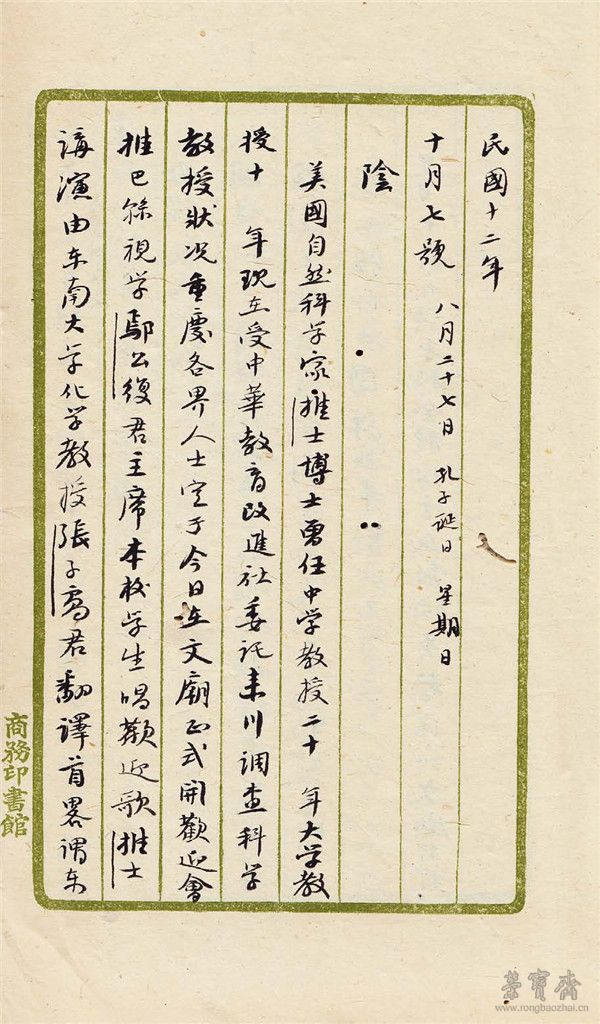 民國十二年
十月七號 八月二十七日 孔子誕日 星期日
陰
美國自然科学家推士博士曾任中学教授二十 年大学教
授十 年現在受中華教育改進社委託来川調查科学
教授狀况重慶各界人士定于今日在文廟正式開歡迎會
推巴縣視学鄢公復君主席本校学生唱歡迎歌推士
講演由东南大学化学教授張子高君翻譯首畧谓东
商務印書館
榮寶齋
www.rongbaozhai.cn